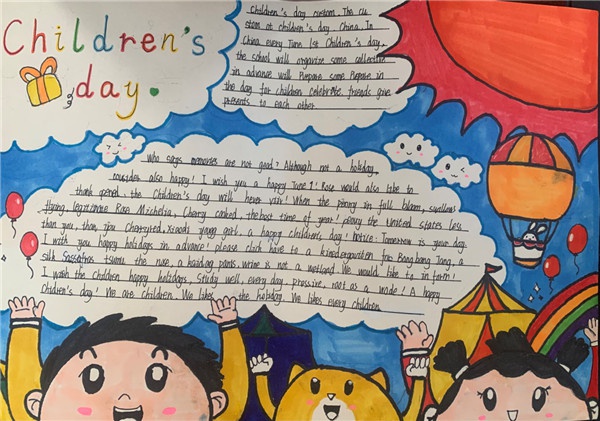 Children's
day.
Children's day custom. The cu
stom of children's day. China. In
China every June 1st Children's day,
the school will organize some collective
in advance will Prepare some Prepare in
the day for children celebrate. friends give
presents to each other
Who says memories are not good? Although not a holiday,
also happy! I wish you a happy June 1! Rose would also like to
thank opened. the Children's day will never visit! When the peony in full bloom, swallows
flying, Rose Michelia, Cherry caoked, the best time of year! peony the United states less
than you, than you Cherryred, young girl, a happy children's day! Notice: Tomorrow is your day.
I wish you happy holidays in advance! please click have to a kindergarten for Bang bang Tang, a
silk Sassafras the nose, a hairbag pants, urine is not a wetland. We would like to in form!
I wash the children happy holidays, Study well, every day, not as a mode! A happy
Children's day! We are children. We likes the holiday. We likes every children.